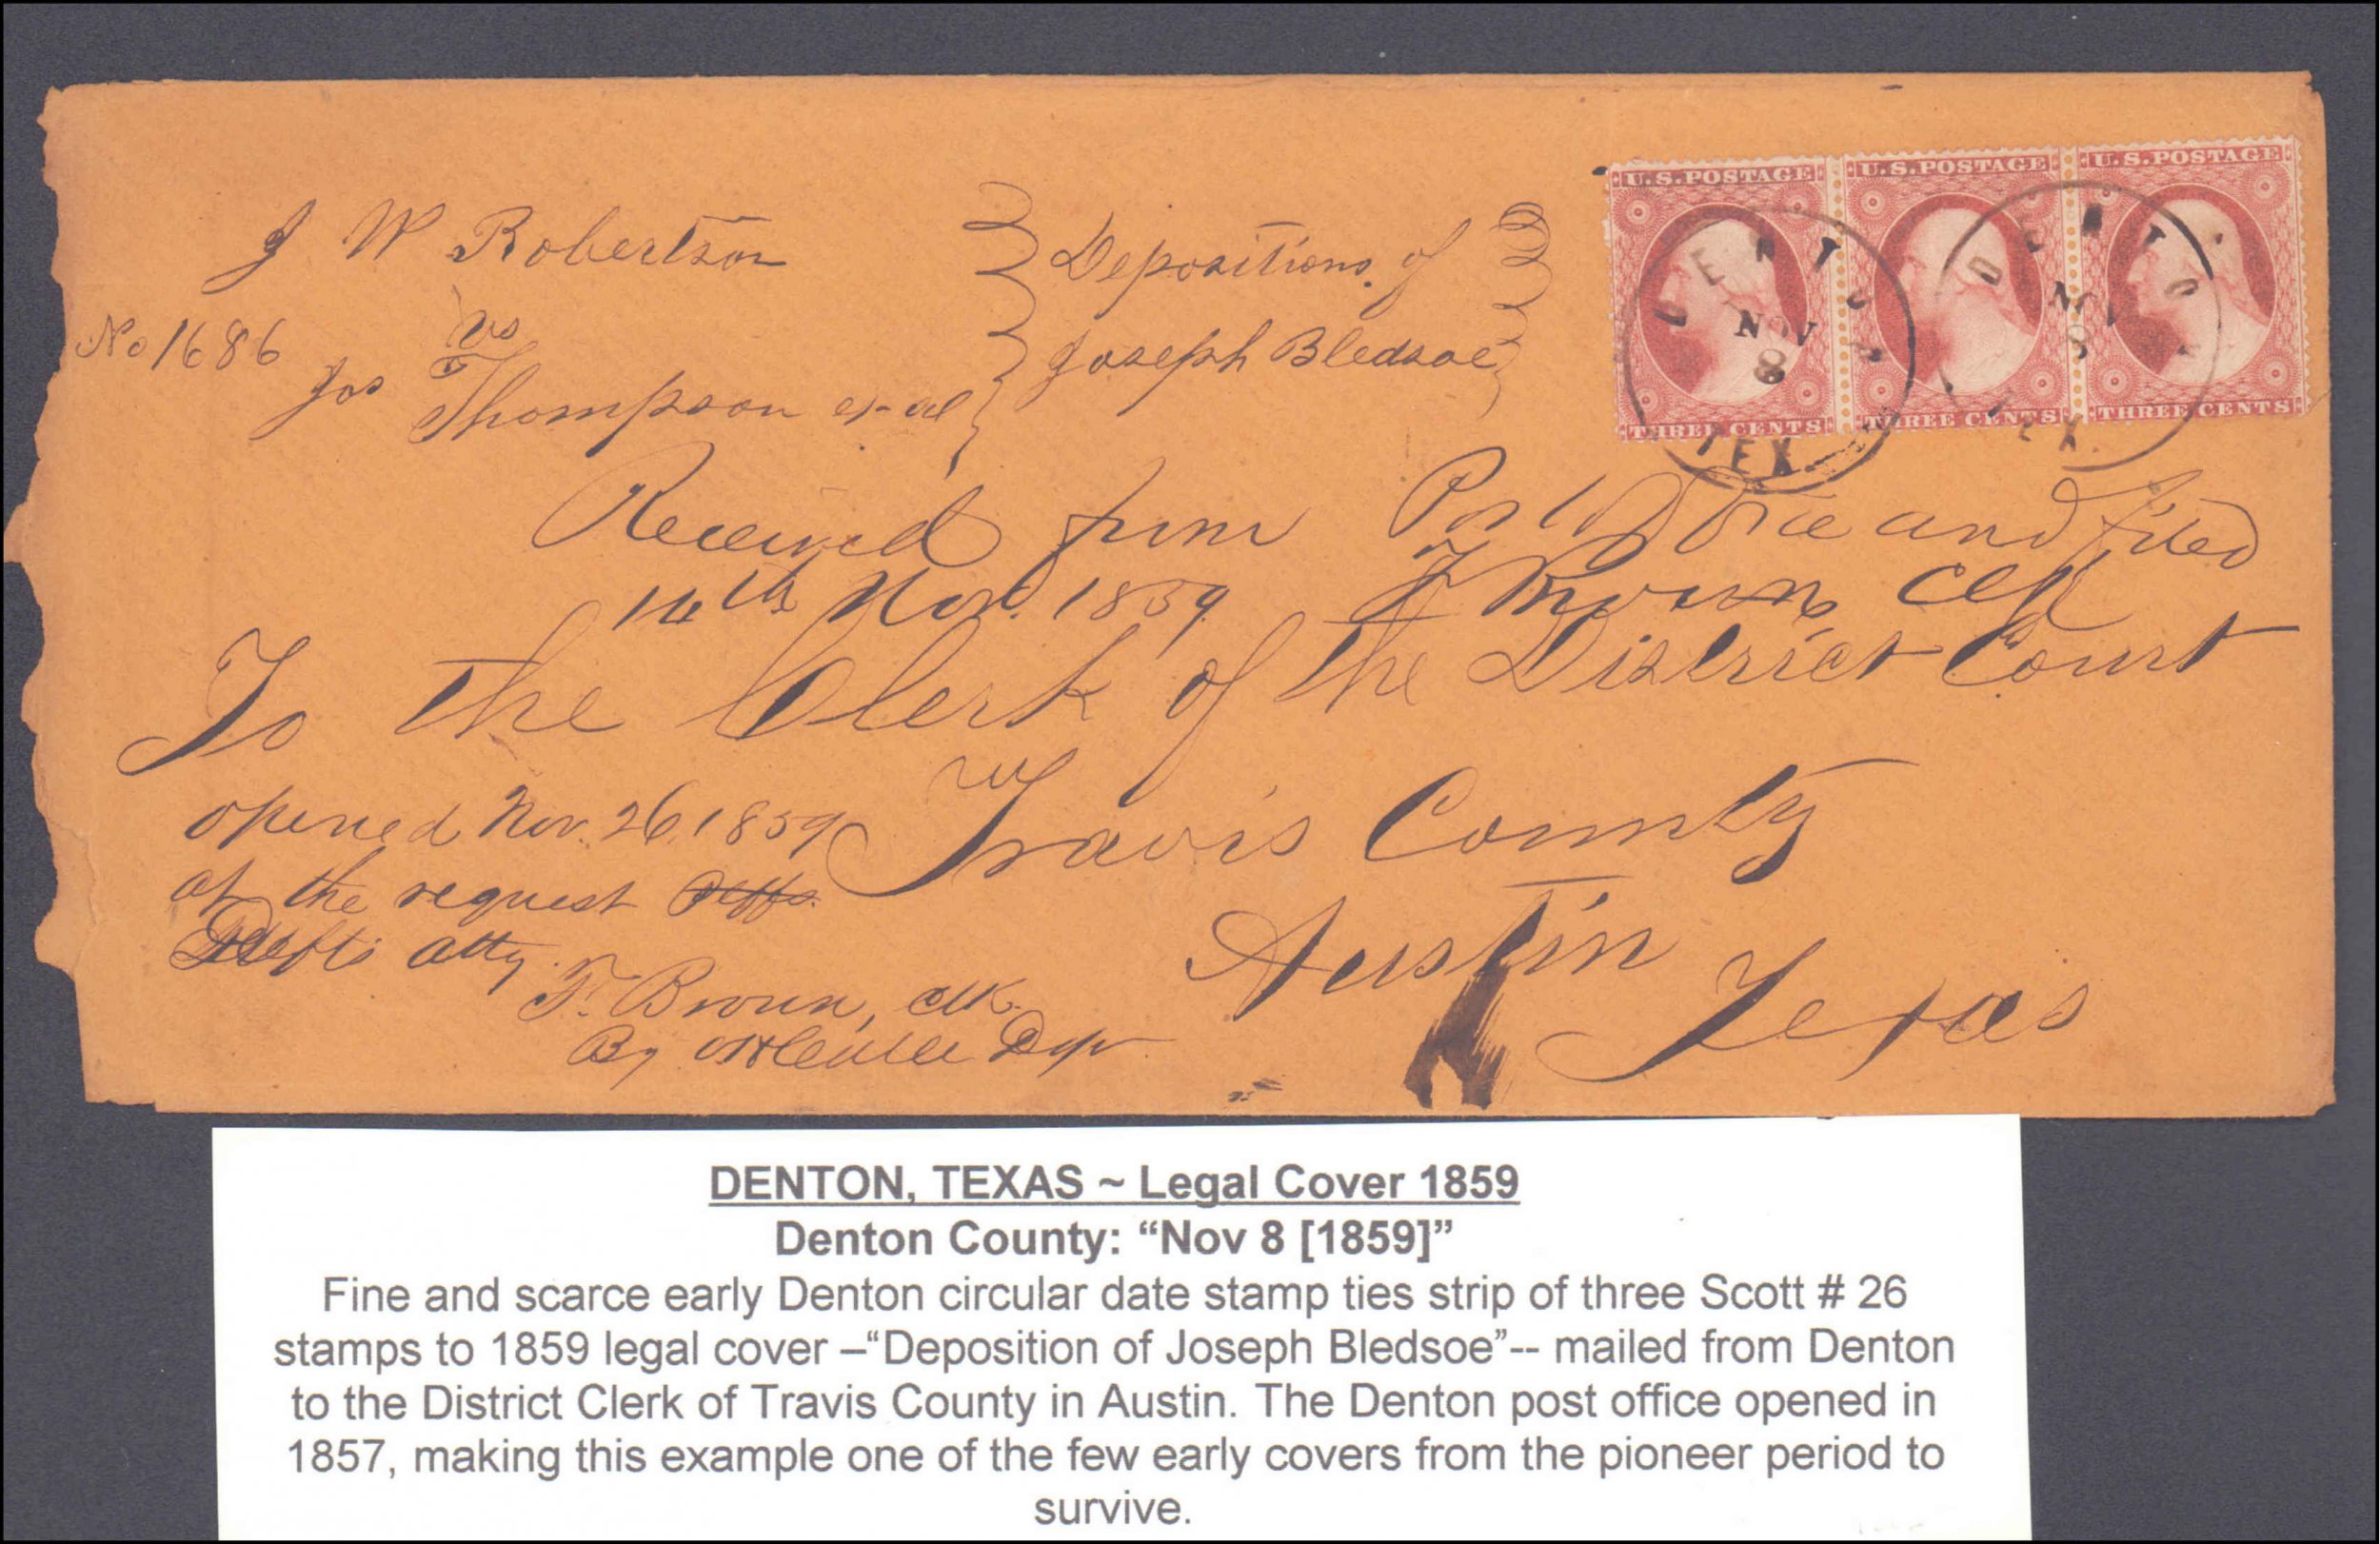 U.S.POSTAGE U.S.POSTAGE U.S.POSTAGE
DENTON NOV 8 TEX
DENTO NOV 8 TEX.
THREE CENTS THREE CENTS THREE CENTS
J W Robertson
No 1686
vs
Jos Thompson et al
Depositions of
Joseph Bledsoe
Received from Post Office and filed
14th Nov. 1859. F Brown, Clk
To the Clerk of the District Court
of
Travis County
Austin
Texas
opened Nov. 26, 1859
at the request Plffs.
Defts atty.
F. Brown, clk.
By Dep
DENTON, TEXAS ~ Legal Cover 1859
Denton County: “Nov 8 [1859]”
Fine and scarce early Denton circular date stamp ties strip of three Scott # 26
stamps to 1859 legal cover –“Deposition of Joseph Bledsoe”-- mailed from Denton
to the District Clerk of Travis County in Austin. The Denton post office opened in
1857, making this example one of the few early covers from the pioneer period to
survive.